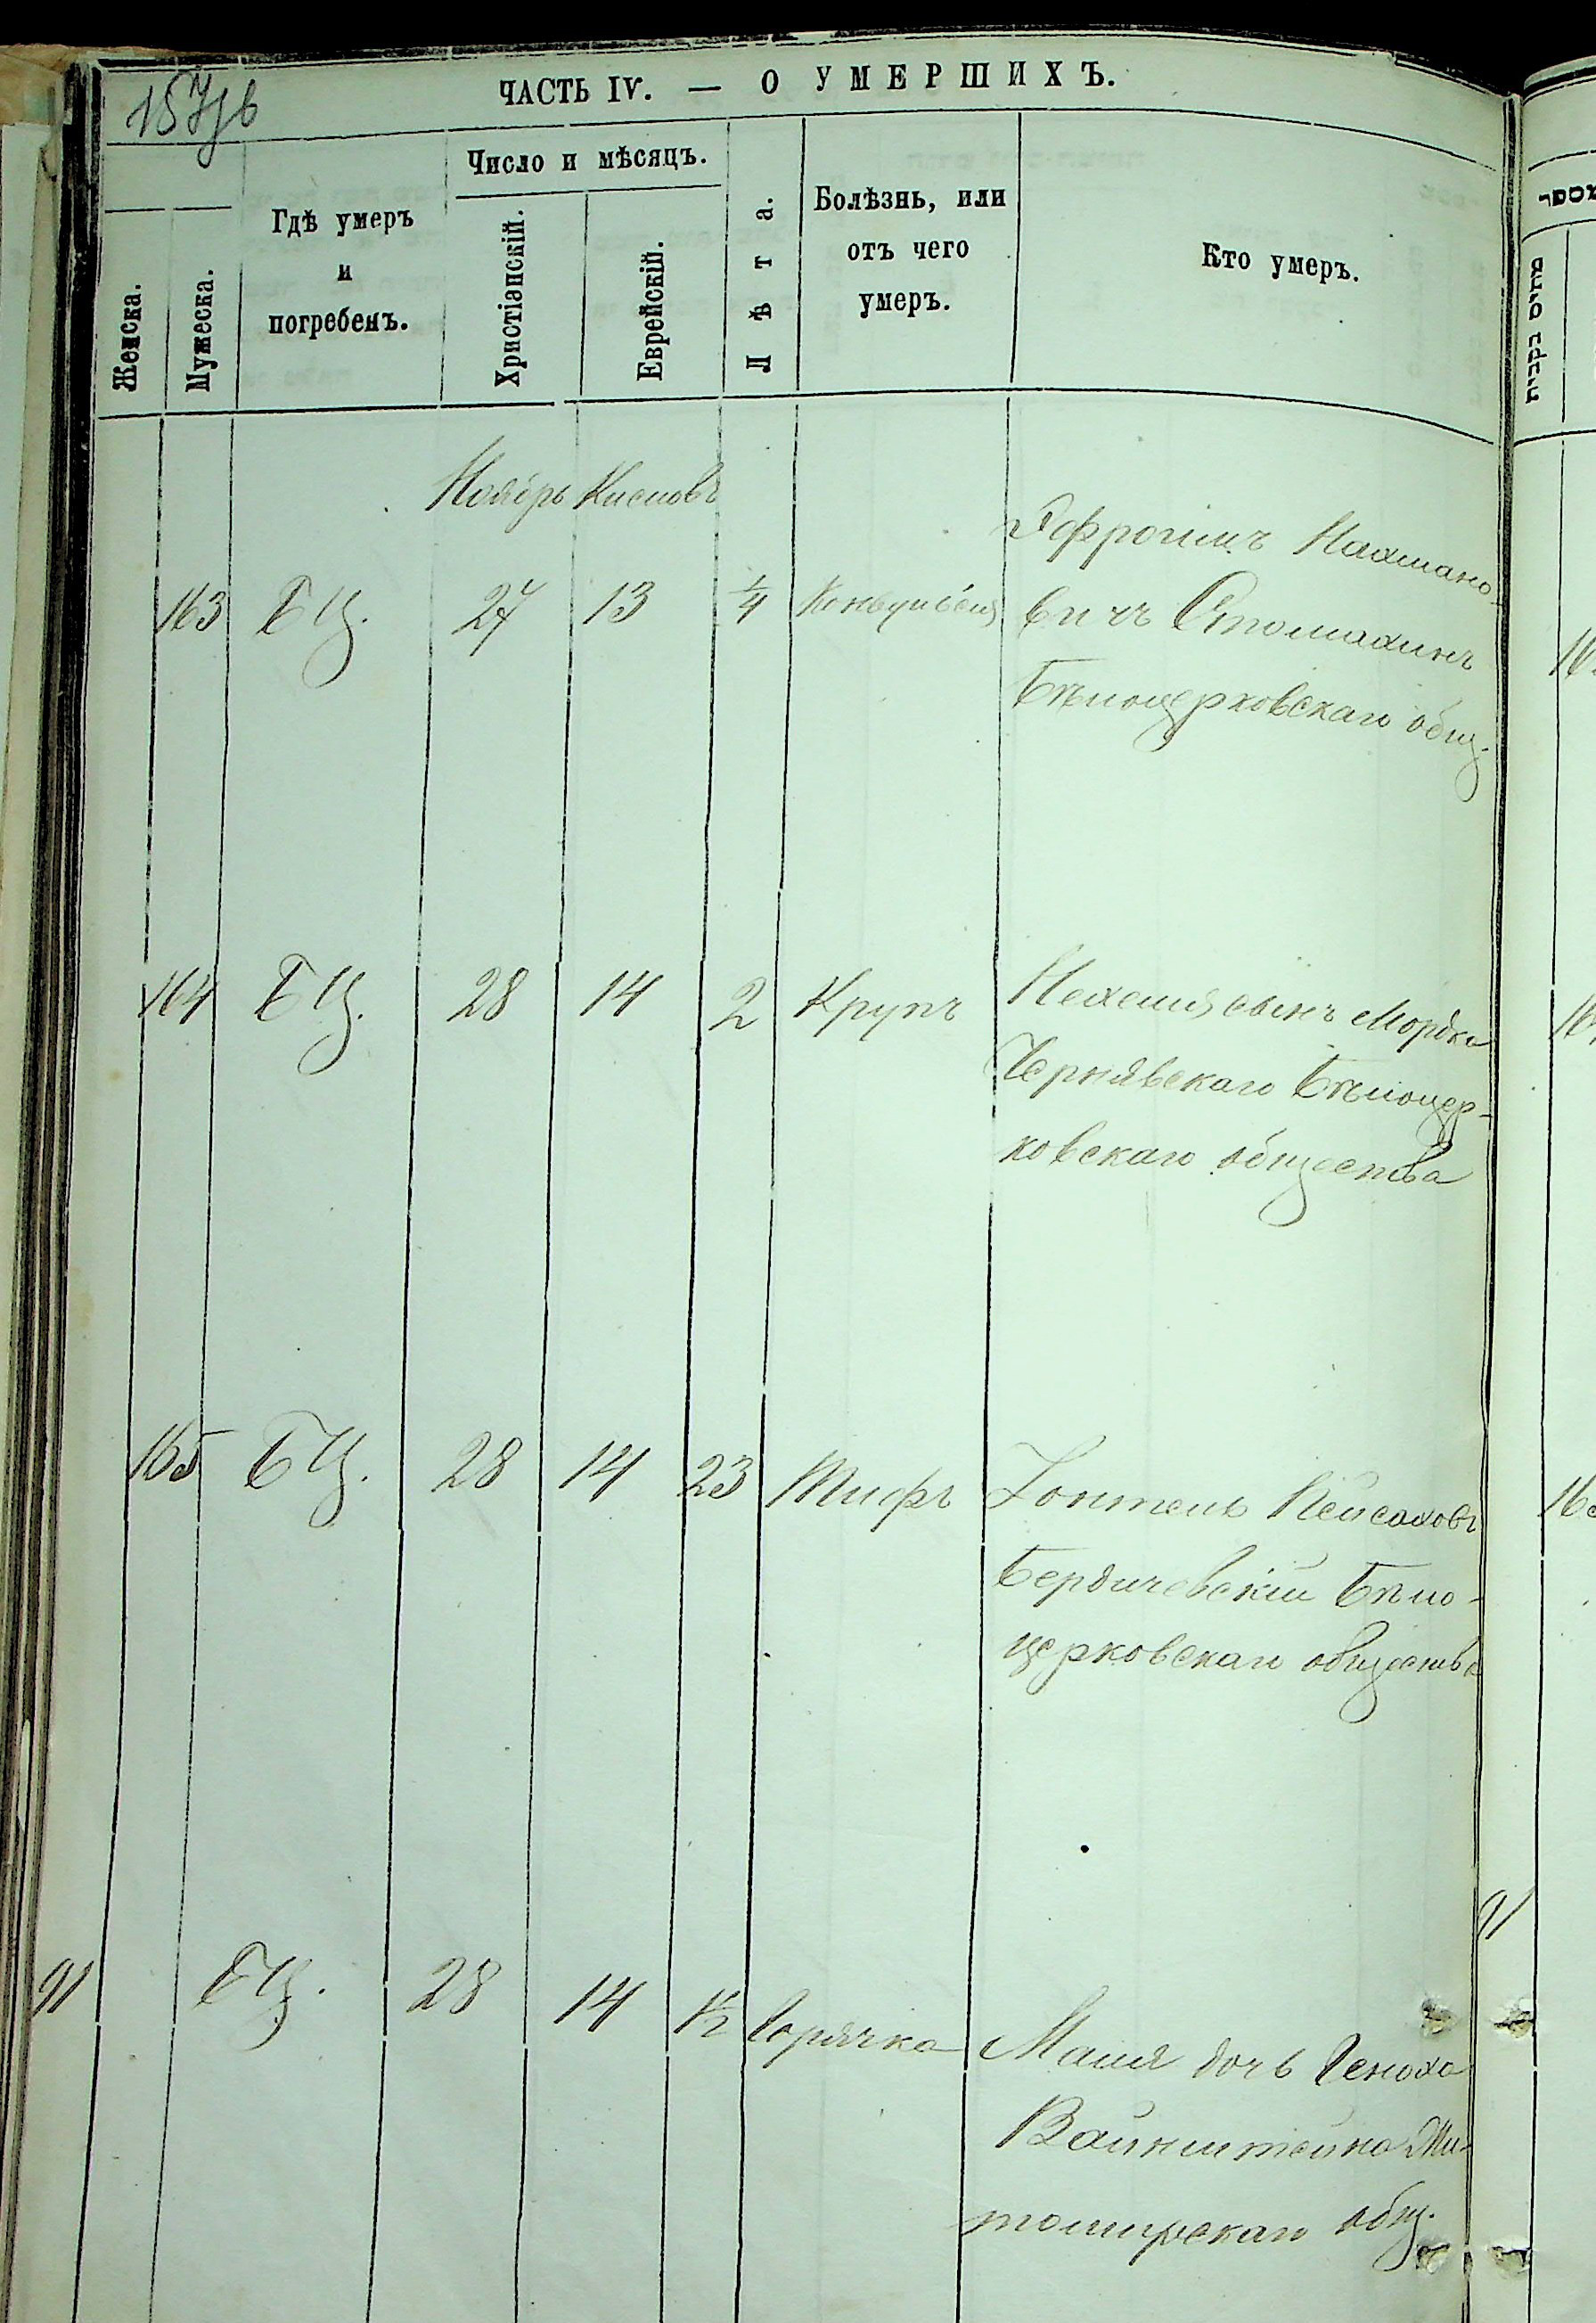 187/6
ЧАСТЬ IV. — О УМЕРШИХЪ.
Женска.
Мужеска.
Гдѣ умеръ
и
погребенъ.
Число и мѣсяцъ.
Христіэпскій.
Еврейскій.
Лѣта.
Болѣзнь, или
отъ чего
умеръ.
Кто умеръ.
מספר
מתים בקבית
Ноябрь Кислевъ
163 БЦ. 27 13 1/4 Конвульсія
Эфроимъ Нахмано-
вичъ Стомахинъ
Бѣлоцерковскаго общ.
164 БЦ. 28 14 2 Крупъ
Нехемія сынъ Мордка
Чернявскаго Бѣлоцер-
ковскаго общества
165 БЦ. 28 14 23 Тифъ
Пейсаховъ
Бердичевскій Бѣло-
церковскаго общества
91 БЦ. 28 14 1/2 Горячка
Маля дочь Геноха
Вайнштейна Жи-
томирскаго общ.
91